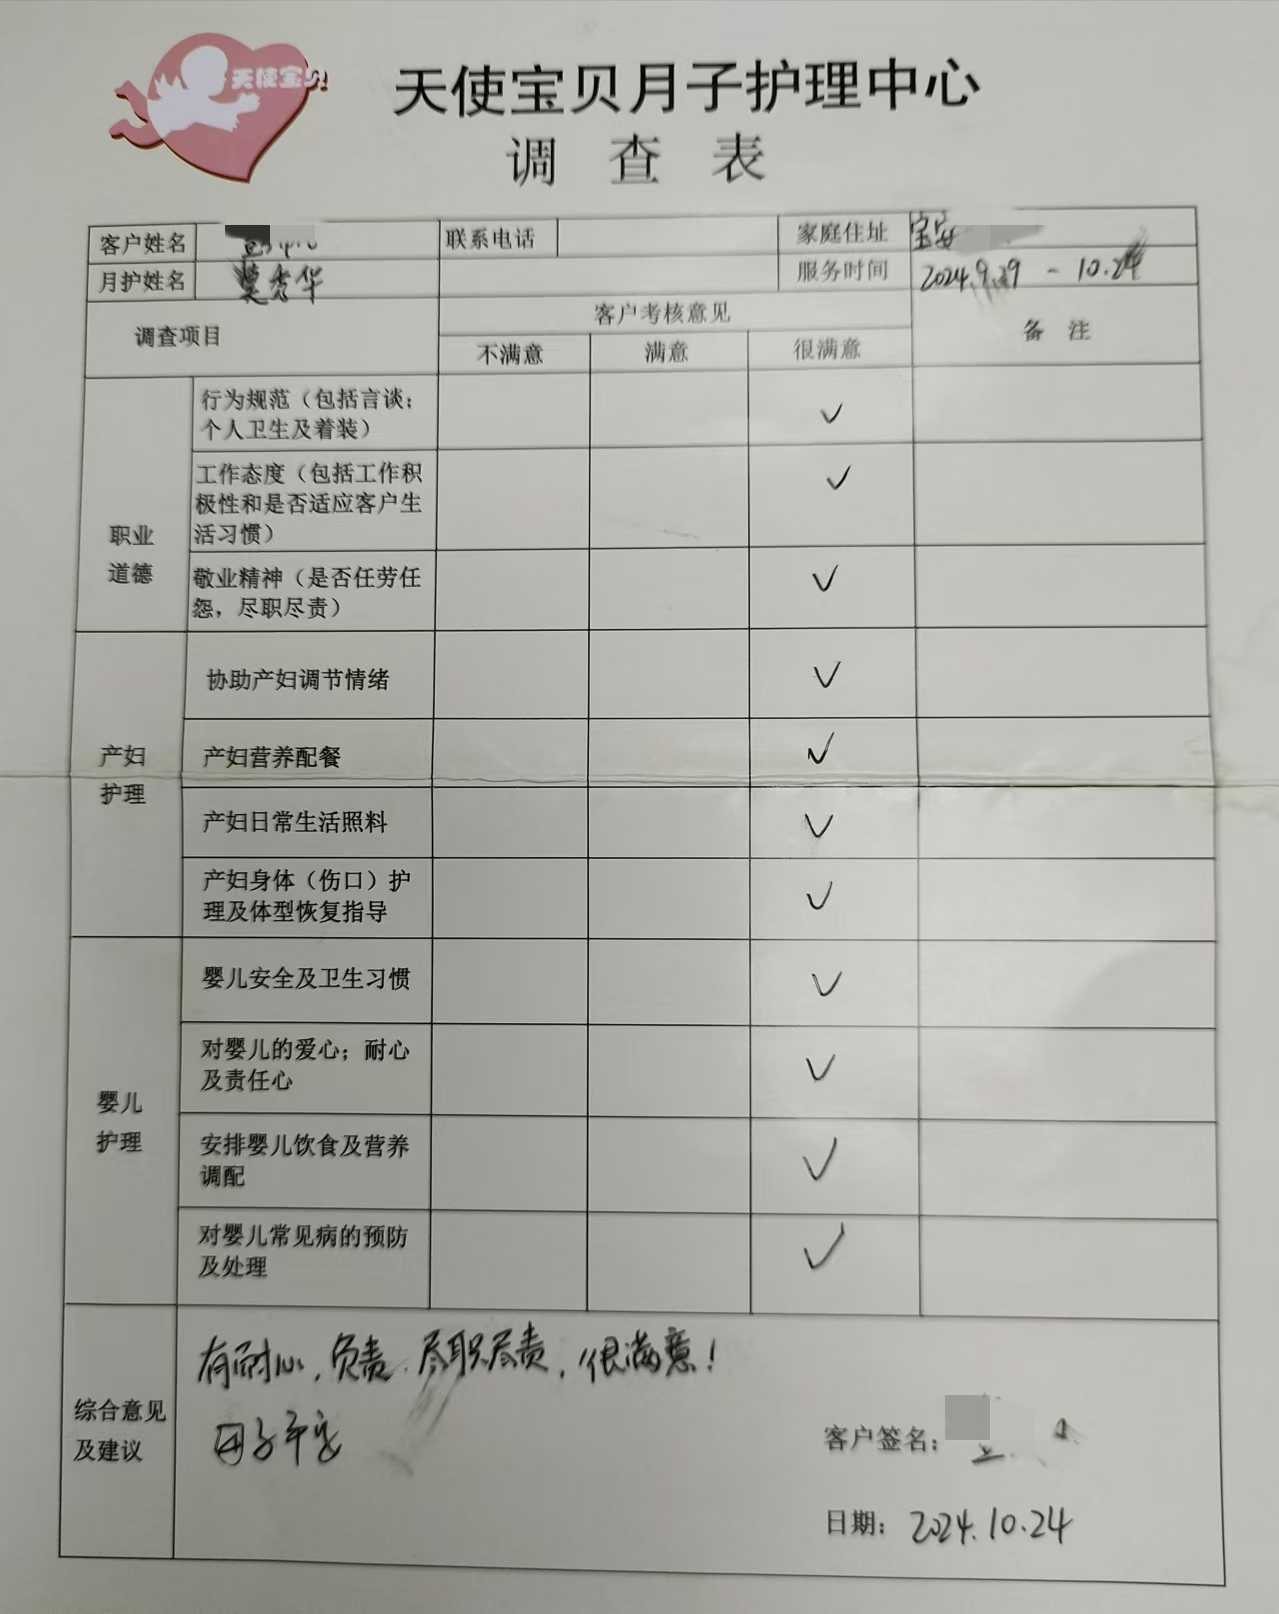 天使宝贝
天使宝贝月子护理中心
调 查 表
客户姓名 联系电话 家庭住址 宝安
月护姓名 莫秀华 服务时间 2024.9.29 - 10.24
调查项目 客户考核意见 备 注
不满意 满意 很满意
职业
道德
行为规范（包括言谈；
个人卫生及着装） ✓
工作态度（包括工作积
极性和是否适应客户生
活习惯） ✓
敬业精神（是否任劳任
怨，尽职尽责） ✓
产妇
护理
协助产妇调节情绪 ✓
产妇营养配餐 ✓
产妇日常生活照料 ✓
产妇身体（伤口）护
理及体型恢复指导 ✓
婴儿
护理
婴儿安全及卫生习惯 ✓
对婴儿的爱心；耐心
及责任心 ✓
安排婴儿饮食及营养
调配 ✓
对婴儿常见病的预防
及处理 ✓
综合意见
及建议
有耐心，负责，尽职尽责，很满意！
母子平安
客户签名：
日期：2024.10.24